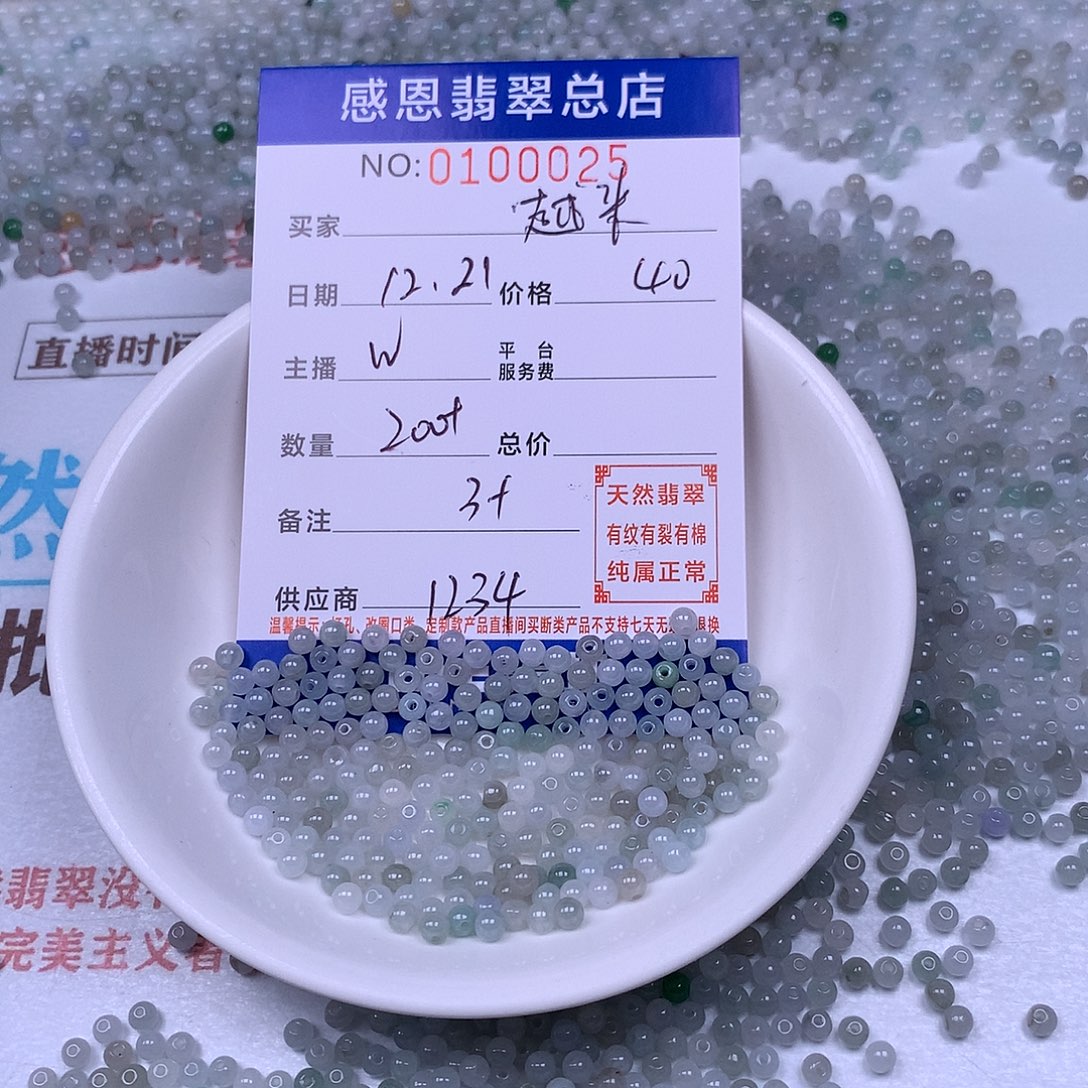 感恩翡翠总店
NO:0100025
买家 越来
日期 12.21 价格 40
主播 W 平台服务费
数量 200+ 总价
备注 3+
供应商 1234
天然翡翠
有纹有裂有棉
纯属正常
温馨提示:打孔、改圈口类、定制款产品直播间买断类产品不支持七天无 退换
直播时间
然
批
翡翠没有
完美主义者